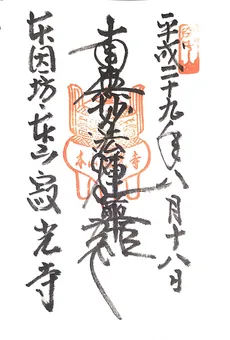 平成二十九年八月十八日
南無妙法蓮華経
本因坊本山寂光寺